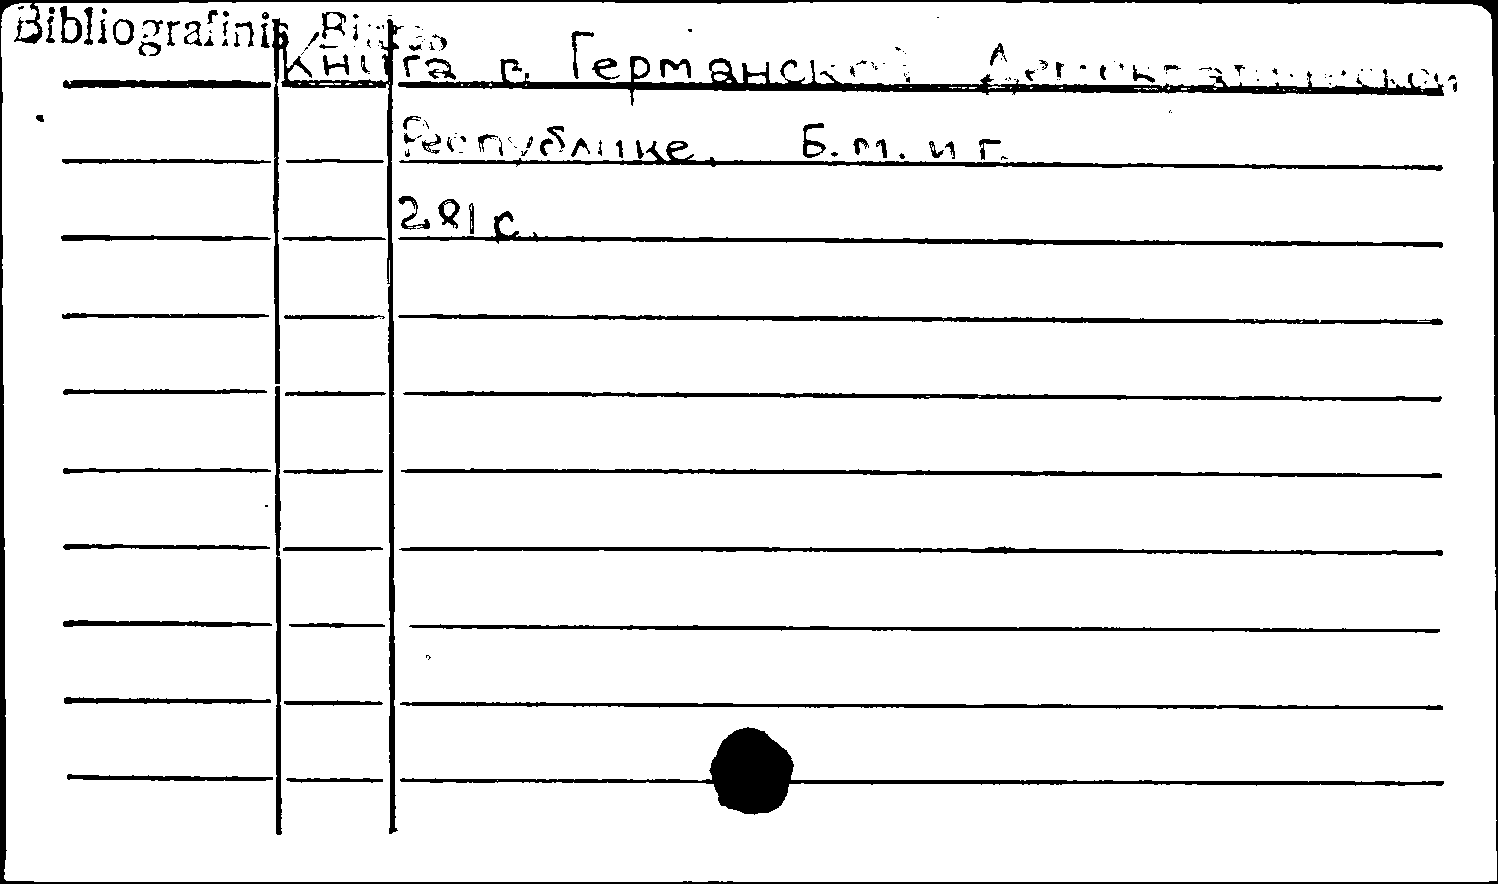 Bibliografinis
Книга в Германской Демократической
Республике. Б.м. и г.
281 с.